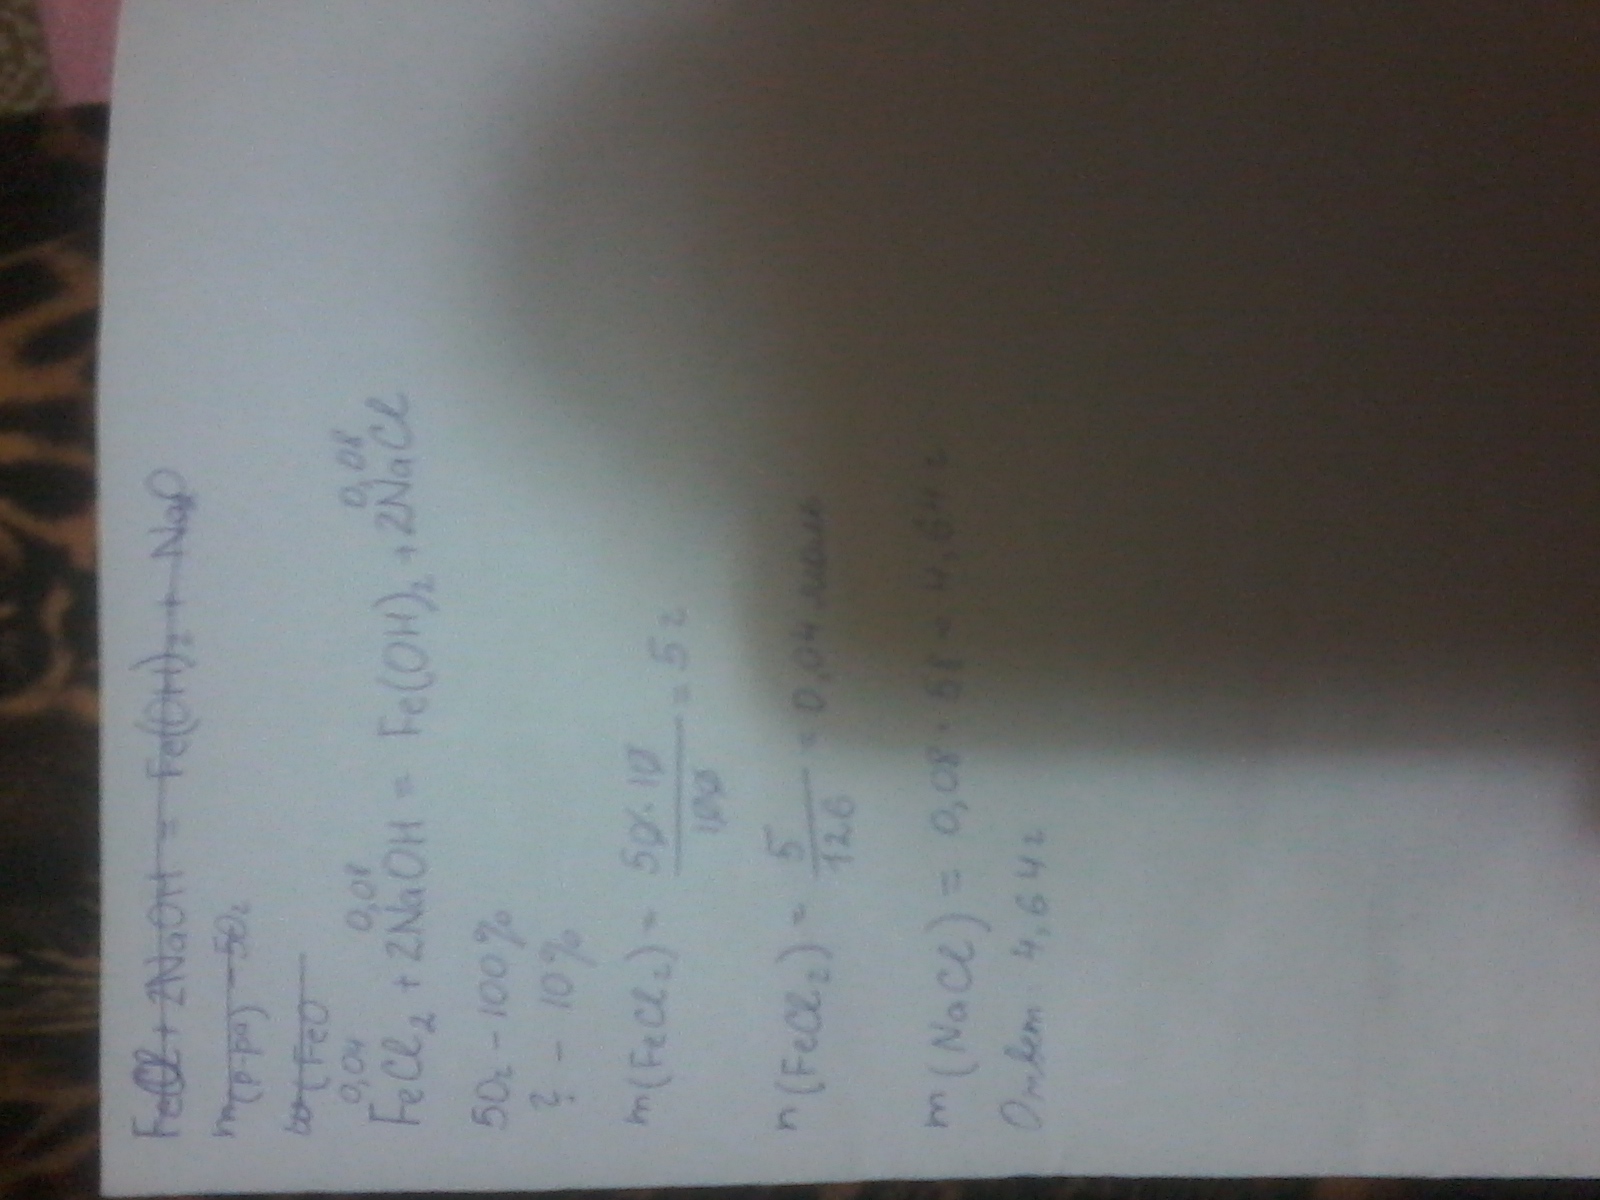 FeCl + 2NaOH = Fe(OH)₂ + NaO
m(р-ра) - 50г
ω(FeO
0,04 0,08 0,08
FeCl₂ + 2NaOH = Fe(OH)₂ + 2NaCl
50г - 100%
? - 10%
m(FeCl₂) = 50·10/100 = 5г
n(FeCl₂) = 5/126 = 0,04 моль
m(NaCl) = 0,08·58 = 4,64 г
Ответ 4,64г